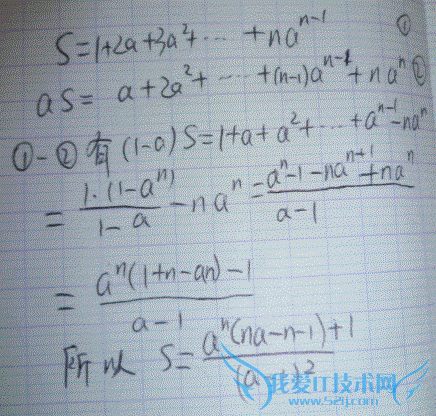 S=1+2a+3a²+⋯+naⁿ⁻¹ ①
aS= a+2a²+⋯+(n-1)aⁿ⁻¹+naⁿ ②
①-② 有 (1-a)S=1+a+a²+⋯+aⁿ⁻¹-naⁿ
= 1·(1-aⁿ)/(1-a) - naⁿ = (aⁿ-1-naⁿ⁺¹+naⁿ)/(a-1)
= (aⁿ(1+n-an)-1)/(a-1)
所以 S= (aⁿ(na-n-1)+1)/(a )²
我爱IT技术网
www.52ij.com